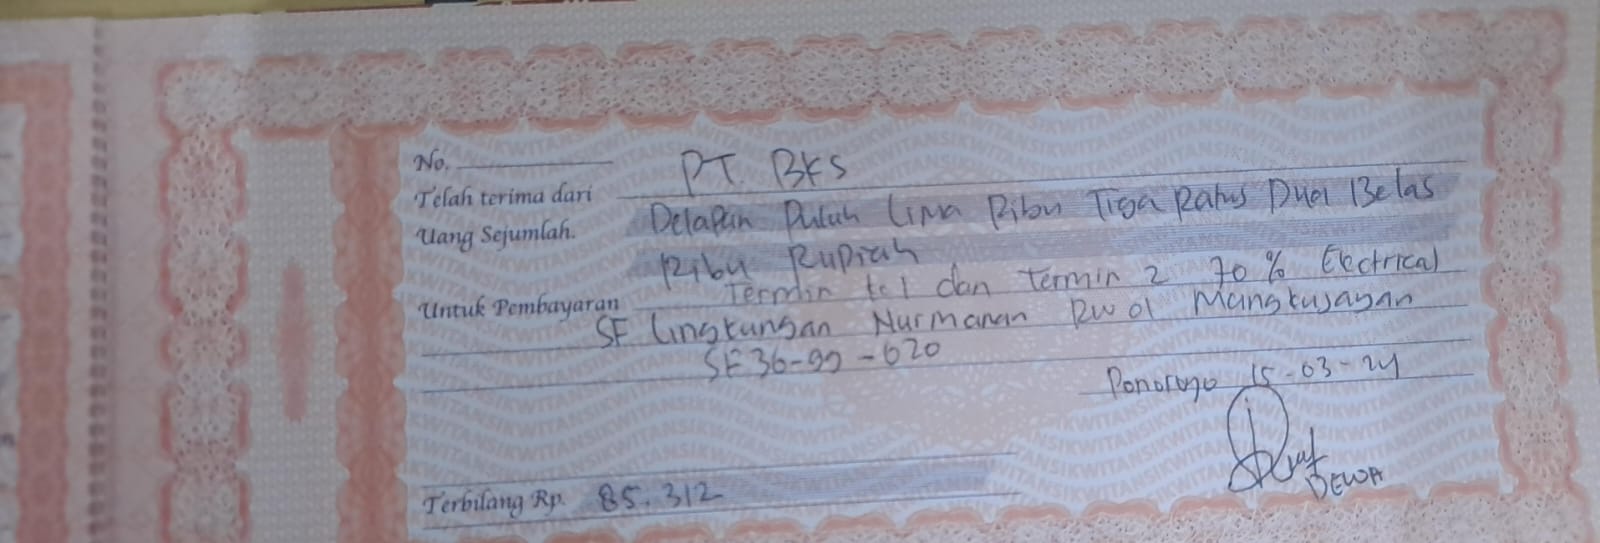 No.
Telah terima dari PT. BKS
Uang Sejumlah. Delapan Puluh Lima Ribu Tiga Ratus Dua Belas
Ribu Rupiah
Untuk Pembayaran Termin ke 1 dan Termin 2 70 % Electrical
SF Lingkungan Nurmanan RW 01 Mangkujayan
SF36-99-020
Ponorogo 15-03-24
DEWA
Terbilang Rp. 85.312